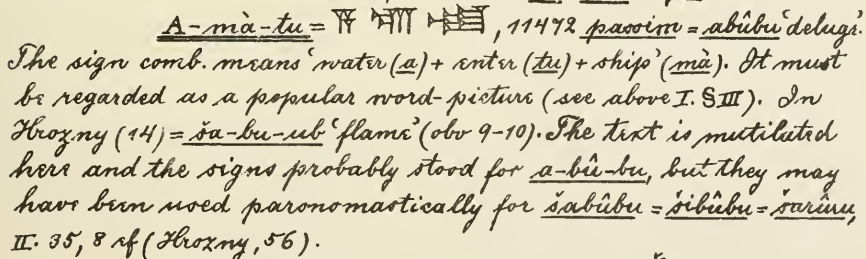 A-mà-tu = 𒀀 𒈣 𒌅, 11472 passim = abûbu 'deluge'.
The sign comb. means 'water (a) + enter (tu) + ship' (mà). It must
be regarded as a popular word-picture (see above I. § III). In
Hrozny (14) = ša-bu-ub 'flame' (obv 9-10). The text is mutiluted
here and the signs probably stood for a-bû-bu, but they may
have been used paronomastically for šabûbu = šibûbu = šarûru,
II. 35, 8 cf (Hrozny, 56).